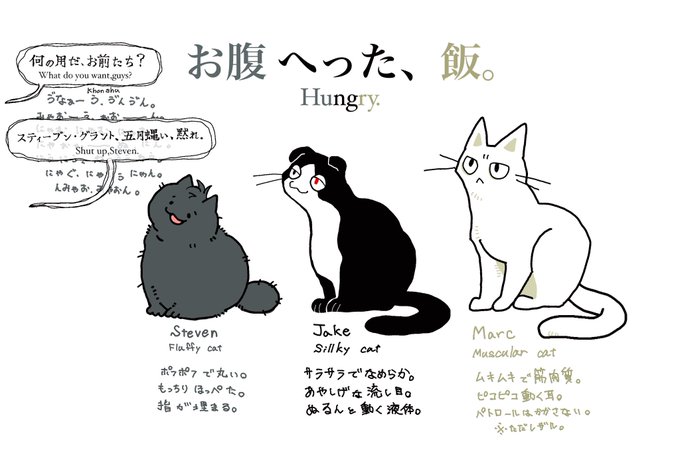 お腹へった、飯。
Hungry.
何の用だ、お前たち？
What do you want,guys?
Khonshu
みゃお
スティーブン・グラント、五月蝿い、黙れ。
Shut up,Steven.
にゃぐ、にゃう にゃん。
んみゃお、みゃおん。
Steven
Fluffy cat
ポワポワで丸い。
もっちりほっぺた。
指が埋まる。
Jake
Silky cat
サラサラでなめらか。
あやしげな流し目。
ぬるんと動く液体。
Marc
Muscular cat
ムキムキで筋肉質。
ピコピコ動く耳。
パトロールはかかさない。
※ただしザル。